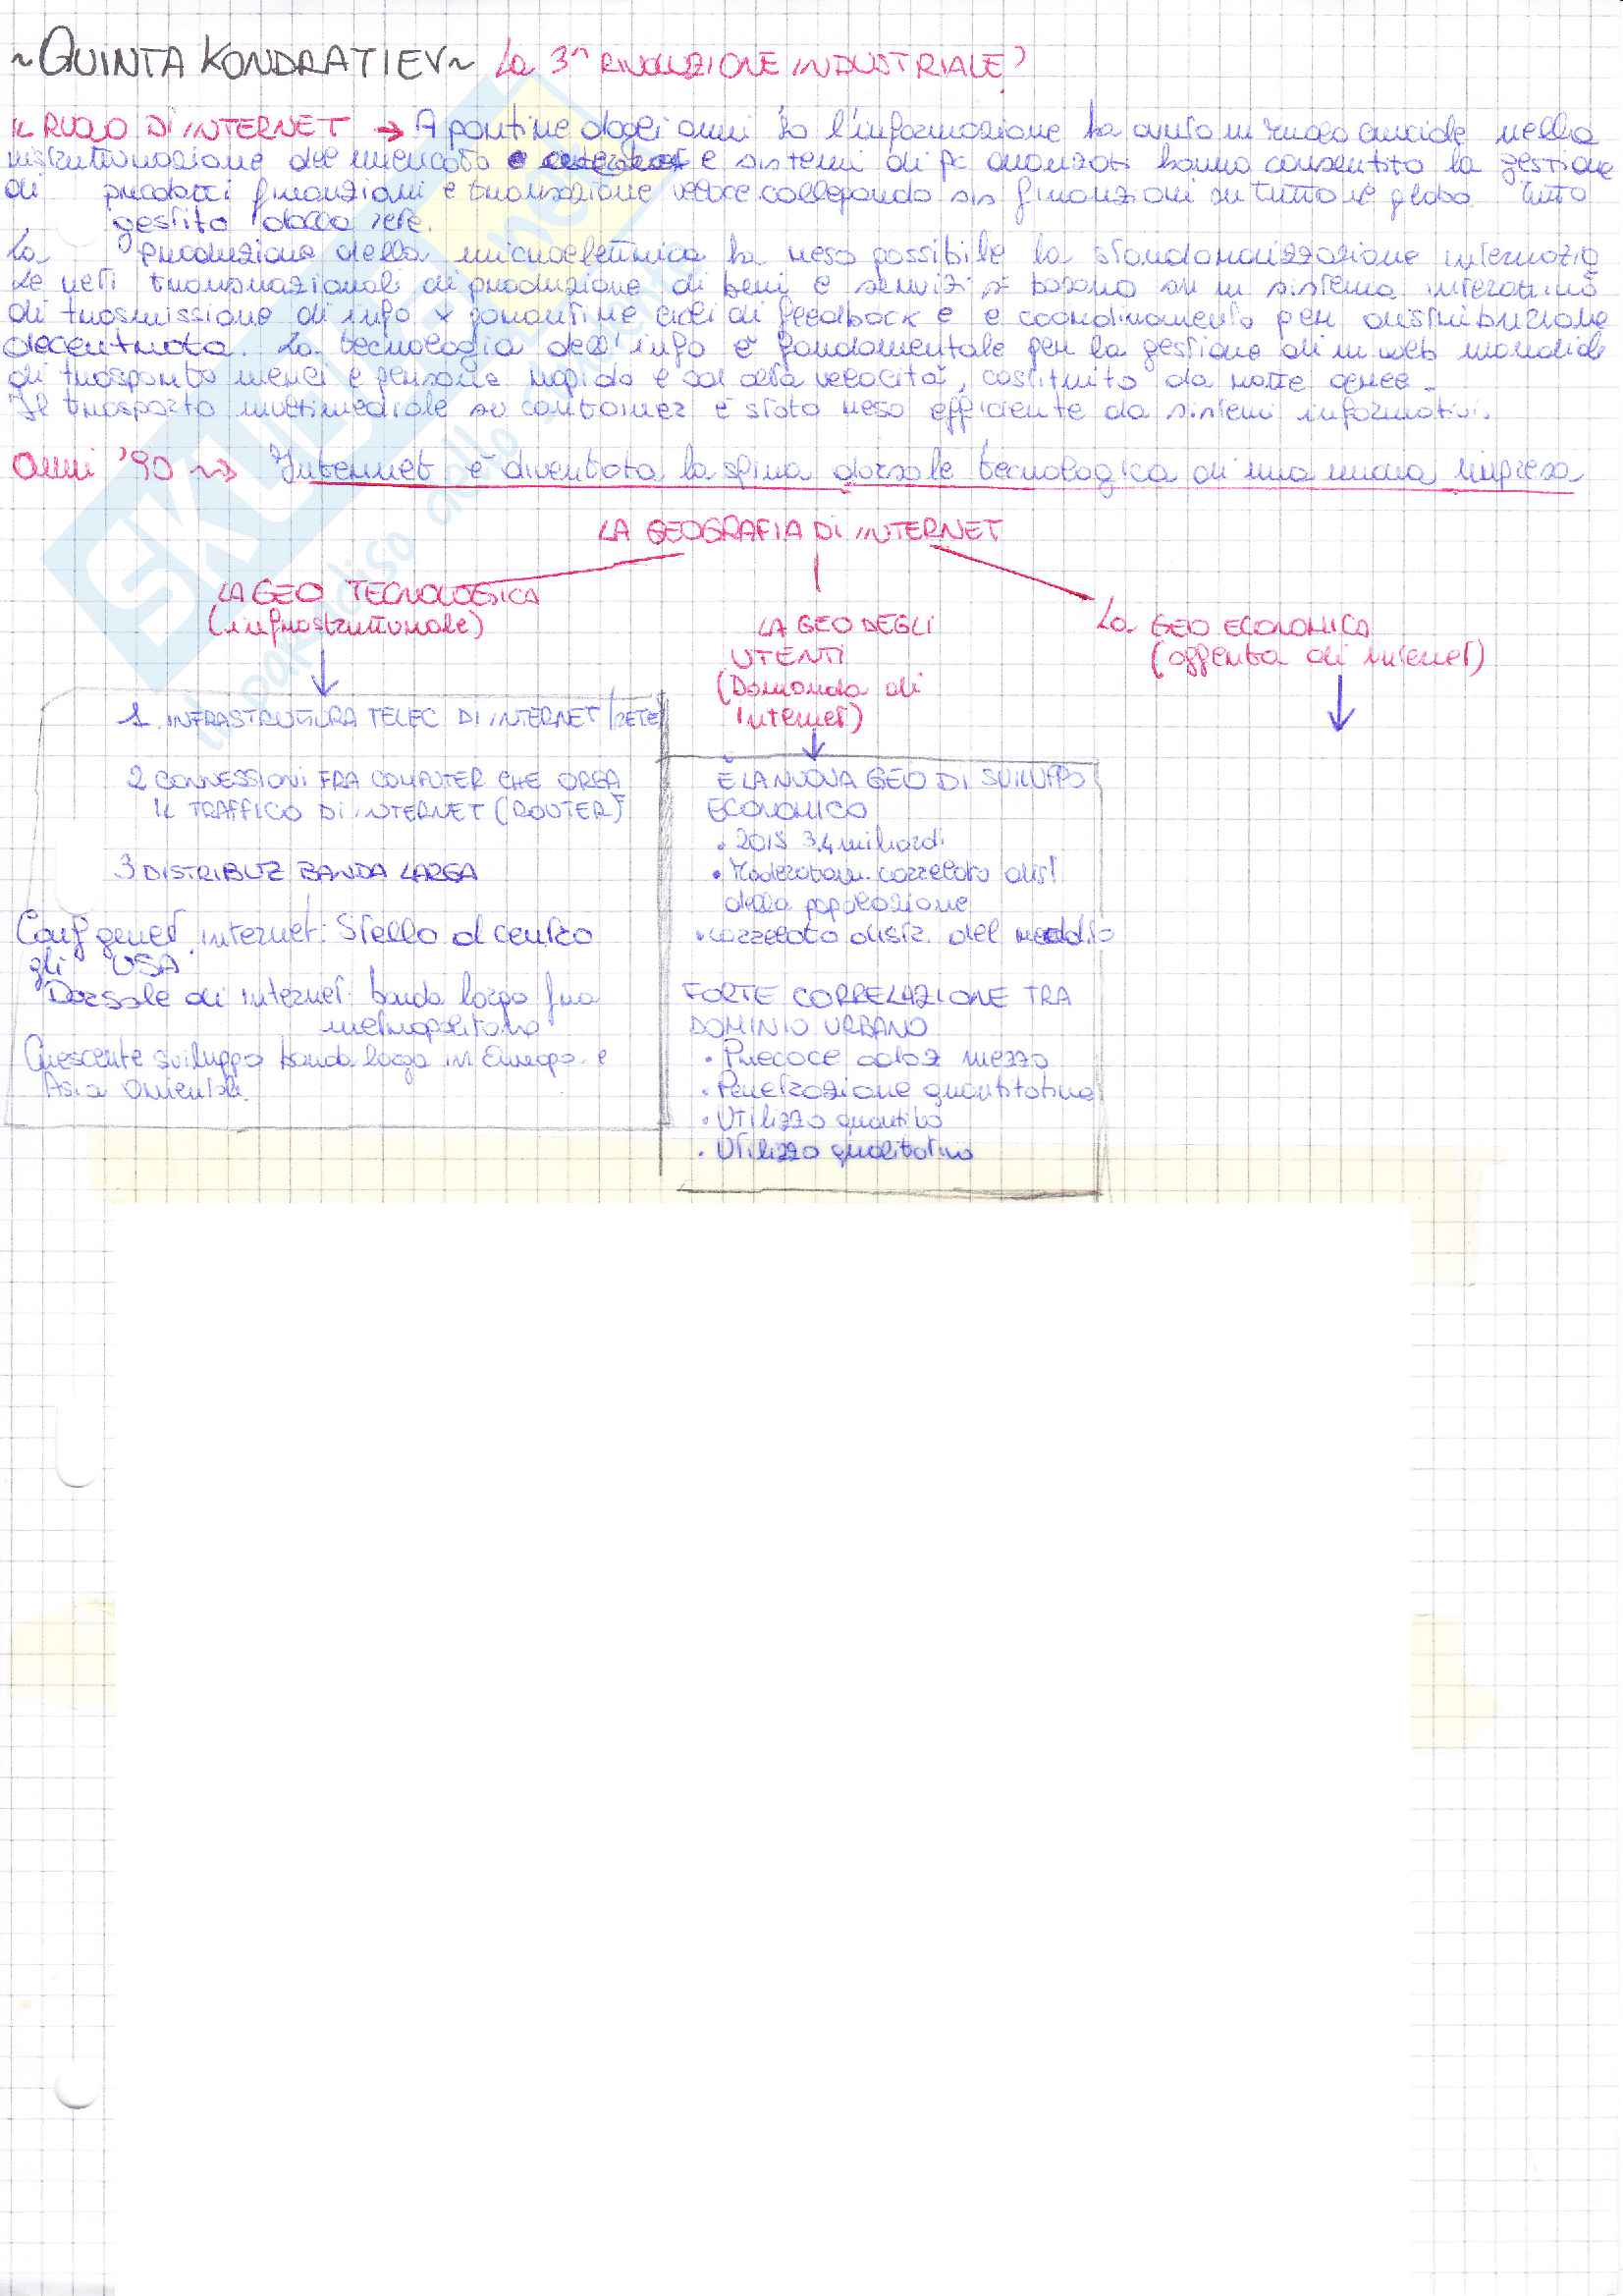 ~QUINTA KONDRATIEV~ La 3ª RIVOLUZIONE INDUSTRIALE?
IL RUOLO DI INTERNET → A partire dagli anni '70 l'informazione ha avuto un ruolo cruciale nella
ristrutturazione del mercato e e sistemi di pc avanzati hanno consentito la gestione
di prodotti finanziari e transazione veloce collegando sis finanziari in tutto il globo tutto
gestito dalla rete.
La produzione della microelettronica ha reso possibile la standardizzazione internazio
Le reti transnazionali di produzione di beni e servizi si basano su un sistema interattivo
di trasmissione di info x garantire cicli di feedback e e coordinamento per distribuzione
decentrata. La tecnologia dell'info è fondamentale per la gestione di un web mondiale
di trasporto merci e persone rapido e ad alta velocità, costituito da rotte aeree.
Il trasporto multimediale su container è stato reso efficiente da sistemi informativi.
Anni '90 ~> Internet è diventata la spina dorsale tecnologica di una nuova impresa
LA GEOGRAFIA DI INTERNET
LA GEO TECNOLOGICA
(infrastrutturale)
LA GEO DEGLI
UTENTI
(Domanda di
Internet)
La GEO ECONOMICA
(offerta di internet)
1. INFRASTRUTTURA TELEC DI INTERNET (RETE)
2 CONNESSIONI FRA COMPUTER CHE ORGA
IL TRAFFICO DI INTERNET (ROUTER)
3 DISTRIBUZ BANDA LARGA
Conf gener. internet: Stella al centro
gli USA
Dorsale di internet: banda larga fra
metropolitana
Crescente sviluppo banda larga in Europa e
Asia Orientale.
È LA NUOVA GEO DI SVILUPPO
ECONOMICO
• 2015 3,4 miliardi
• Moderatam. correlato dist
della popolazione
• correlato distr. del reddito
FORTE CORRELAZIONE TRA
DOMINIO URBANO
• Precoce adoz mezzo
• Penetrazione quantitativa
• Utilizzo quantivo
• Utilizzo qualitativo
SKUOLA
.net
il paradiso dello studente